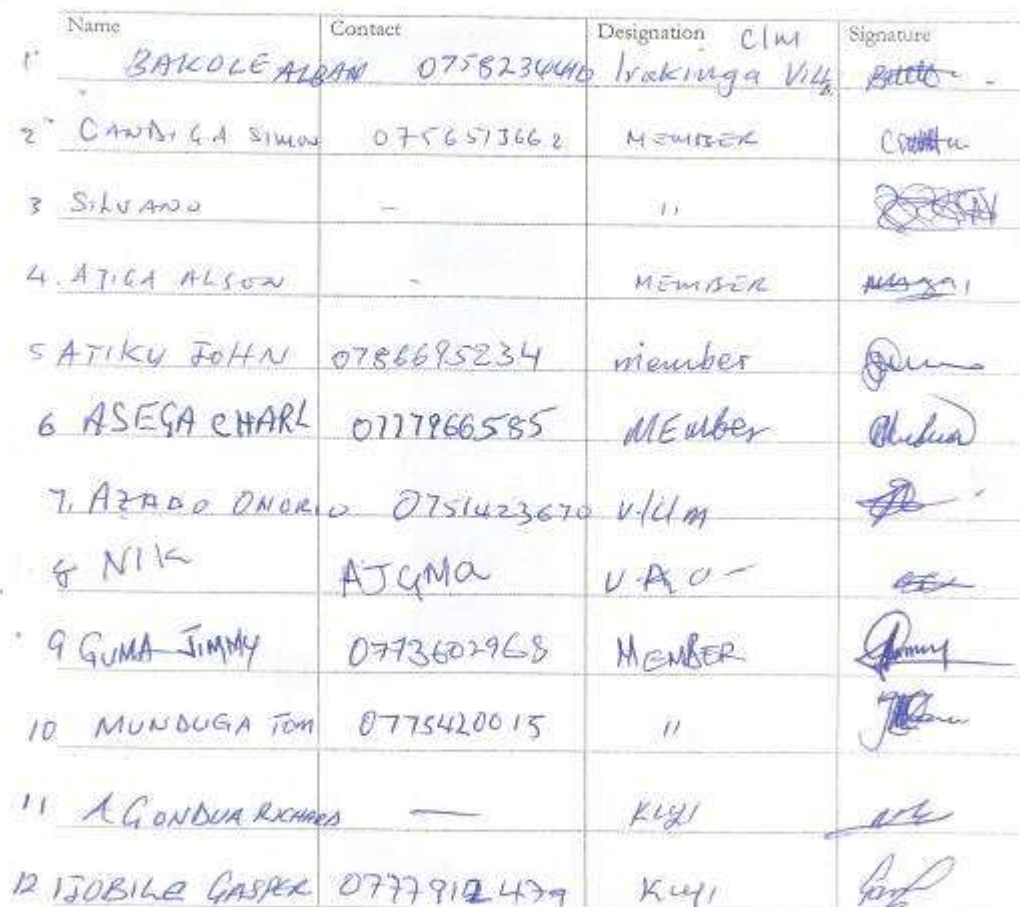 Name Contact Designation C/M Signature
1 BAKOLE ALBAN 0758234440 Irakinga Vill
2 CANDIGA SIMON 0756513662 MEMBER
3 SILVANO - "
4. ATIGA ALSON - MEMBER
5 ATIKU JOHN 0786695234 member
6 ASEGA CHARL 0777966585 MEMber
7. AZABO ONORIO 0751423670 V/C/m
8 NIK AJGMA VAO-
9 GUMA JIMMY 0773602968 MEMBER
10 MUNDUGA Tom 0775420015 "
11 AGONDUA RICHARD —
12 GASPER 0777912479